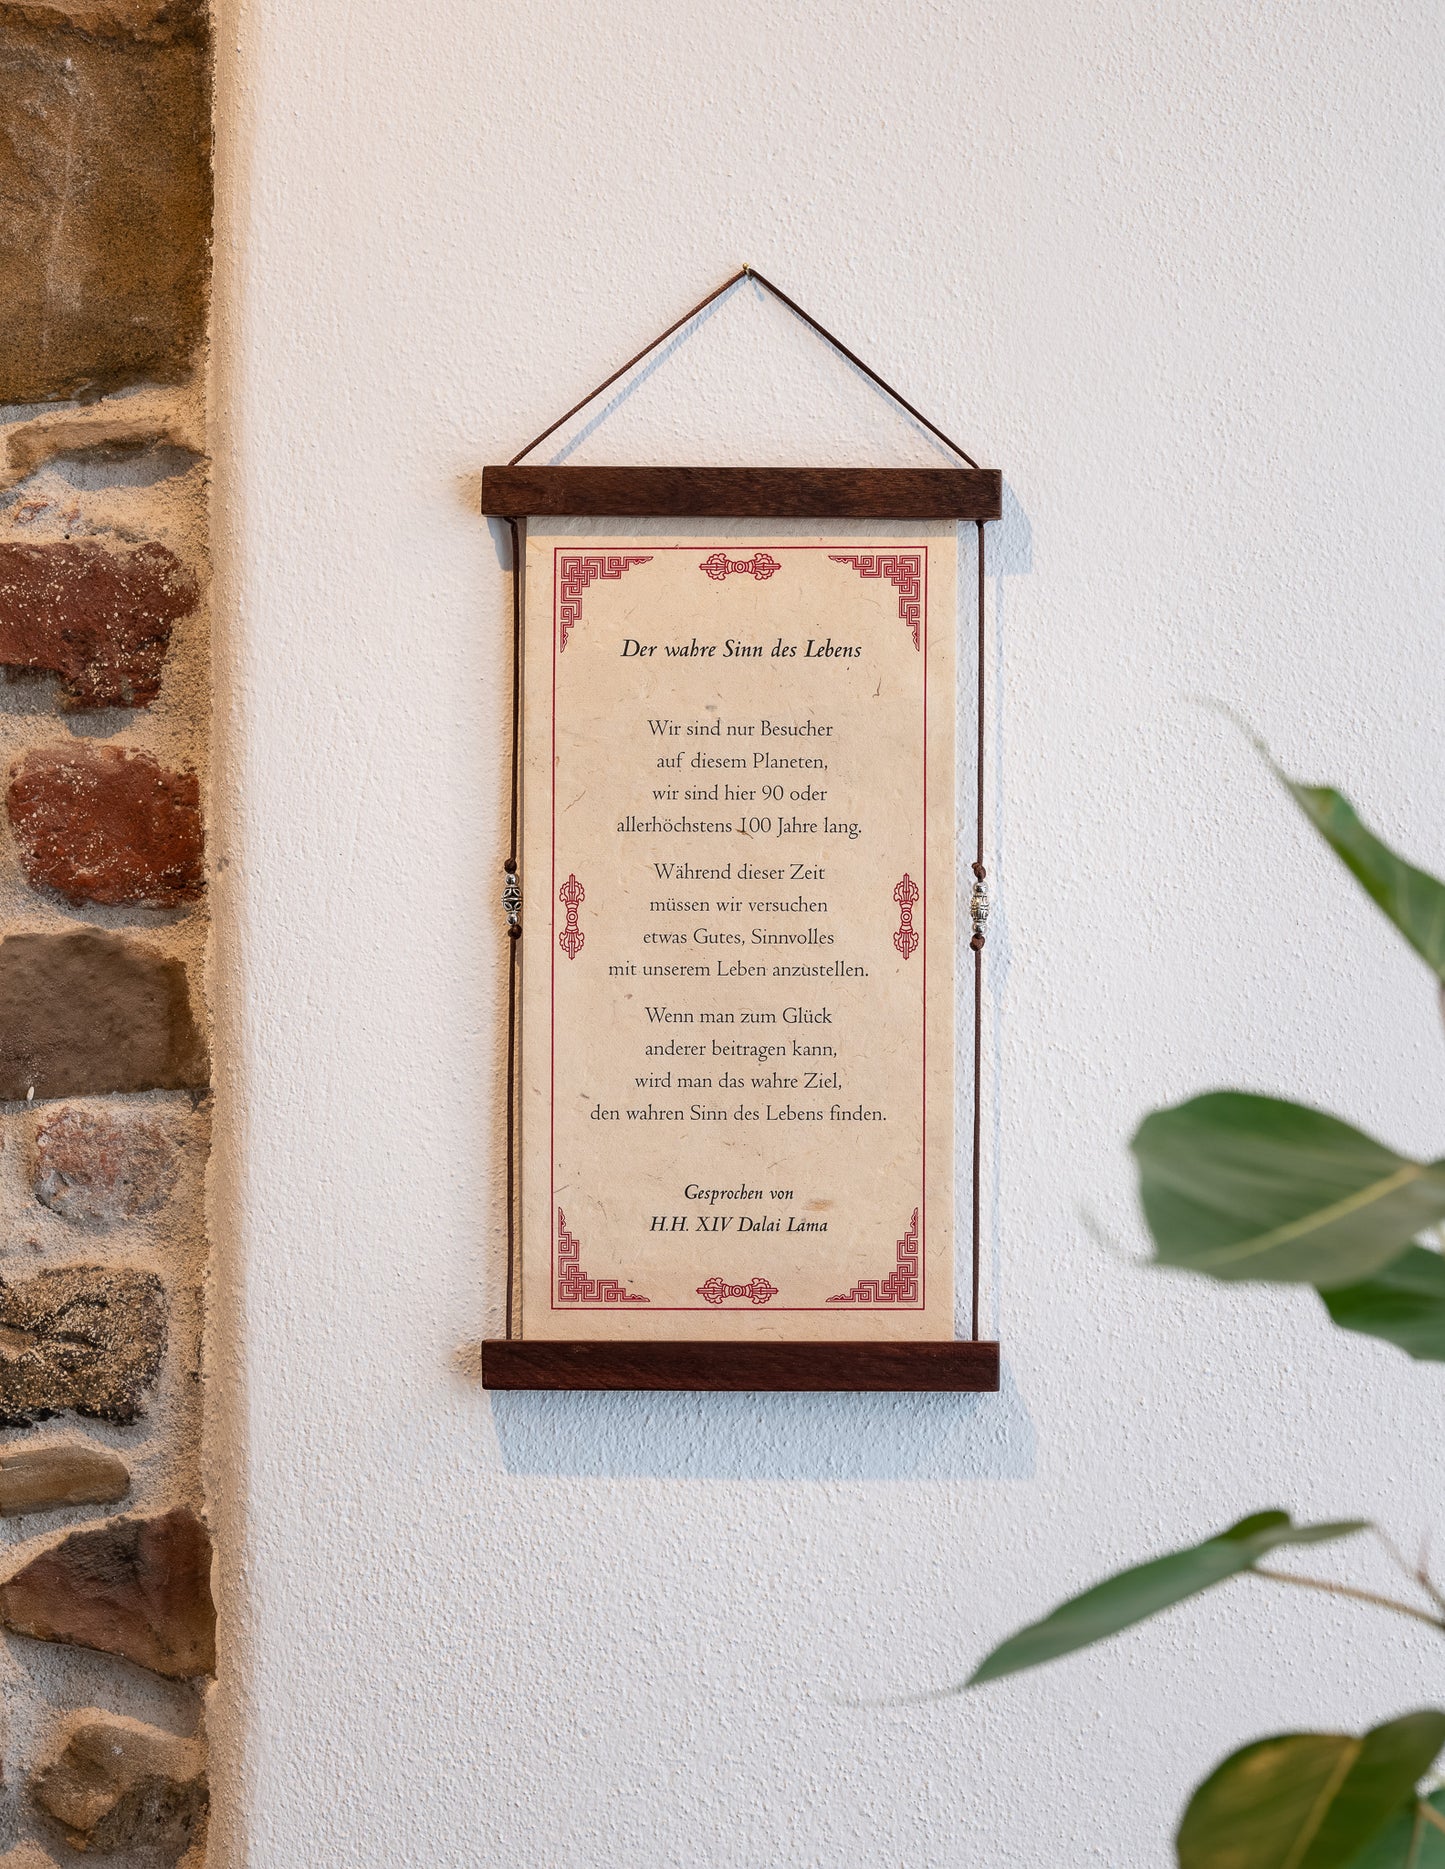 Der wahre Sinn des Lebens
Wir sind nur Besucher
auf diesem Planeten,
wir sind hier 90 oder
allerhöchstens 100 Jahre lang.
Während dieser Zeit
müssen wir versuchen
etwas Gutes, Sinnvolles
mit unserem Leben anzustellen.
Wenn man zum Glück
anderer beitragen kann,
wird man das wahre Ziel,
den wahren Sinn des Lebens finden.
Gesprochen von
H.H. XIV Dalai Lama